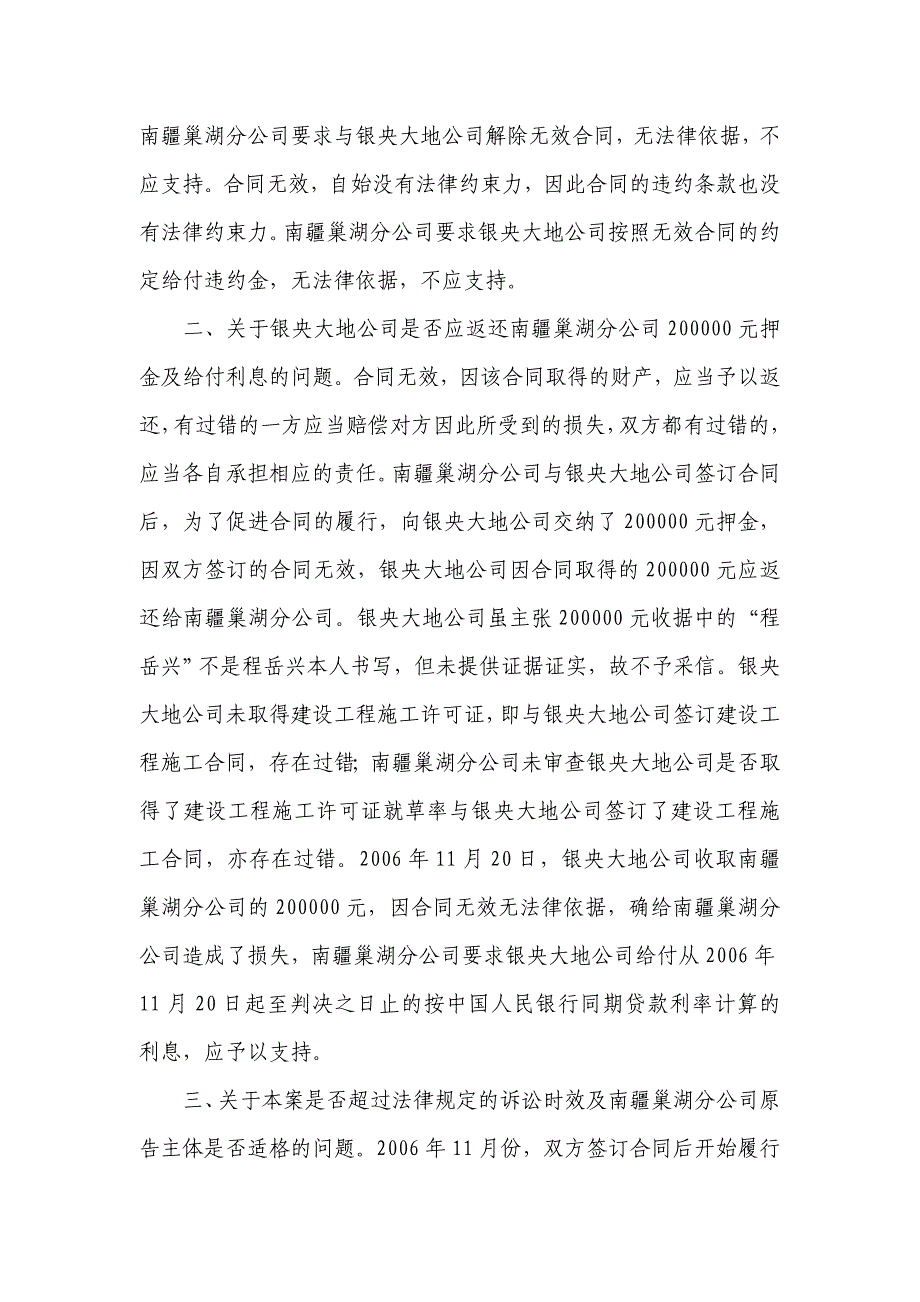 南疆巢湖分公司要求与银央大地公司解除无效合同，无法律依据，不
应支持。合同无效，自始没有法律约束力，因此合同的违约条款也没
有法律约束力。南疆巢湖分公司要求银央大地公司按照无效合同的约
定给付违约金，无法律依据，不应支持。
二、关于银央大地公司是否应返还南疆巢湖分公司 200000 元押
金及给付利息的问题。合同无效，因该合同取得的财产，应当予以返
还，有过错的一方应当赔偿对方因此所受到的损失，双方都有过错的，
应当各自承担相应的责任。南疆巢湖分公司与银央大地公司签订合同
后，为了促进合同的履行，向银央大地公司交纳了 200000 元押金，
因双方签订的合同无效，银央大地公司因合同取得的 200000 元应返
还给南疆巢湖分公司。银央大地公司虽主张 200000 元收据中的“程
岳兴”不是程岳兴本人书写，但未提供证据证实，故不予采信。银央
大地公司未取得建设工程施工许可证，即与银央大地公司签订建设工
程施工合同，存在过错；南疆巢湖分公司未审查银央大地公司是否取
得了建设工程施工许可证就草率与银央大地公司签订了建设工程施
工合同，亦存在过错。2006 年 11 月 20 日，银央大地公司收取南疆
巢湖分公司的 200000 元，因合同无效无法律依据，确给南疆巢湖分
公司造成了损失，南疆巢湖分公司要求银央大地公司给付从 2006 年
11 月 20 日起至判决之日止的按中国人民银行同期贷款利率计算的
利息，应予以支持。
三、关于本案是否超过法律规定的诉讼时效及南疆巢湖分公司原
告主体是否适格的问题。2006 年 11 月份，双方签订合同后开始履行